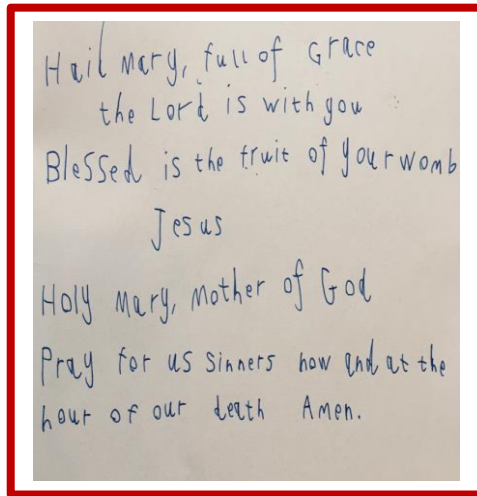 Hail Mary, full of Grace
the Lord is with you
Blessed is the fruit of your womb
Jesus
Holy Mary, Mother of God
Pray for us sinners now and at the
hour of our death Amen.